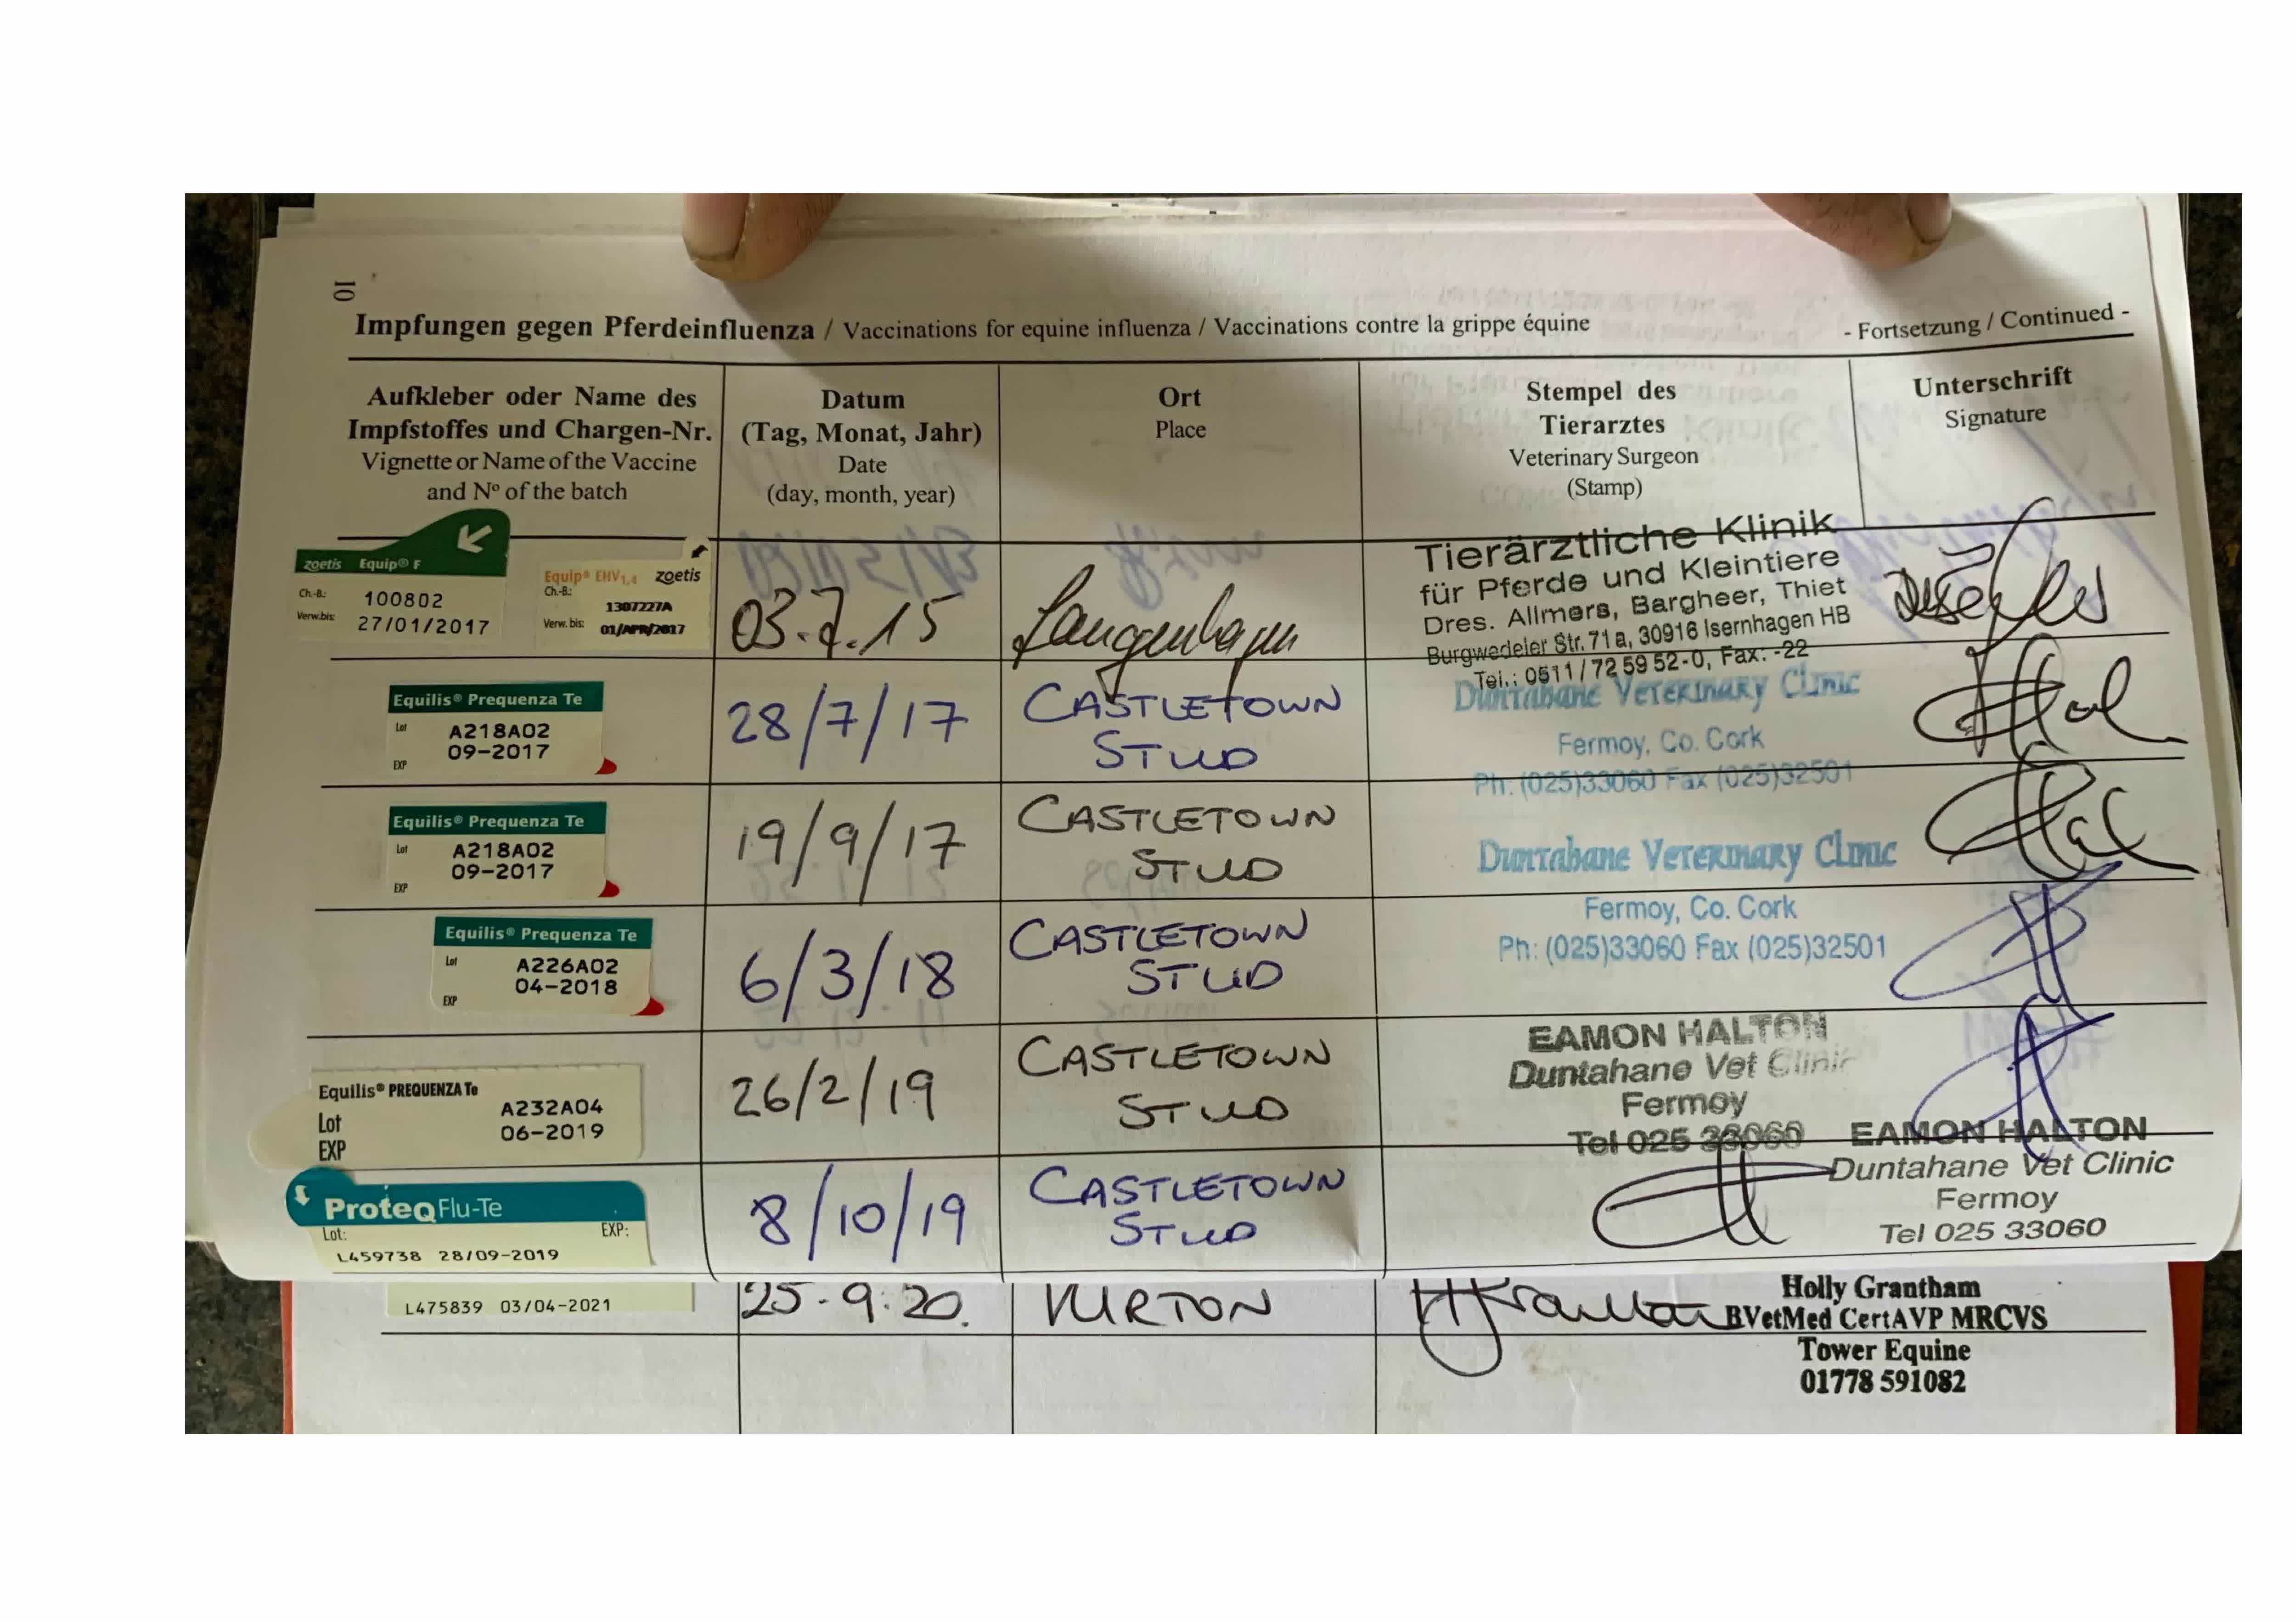 10
Impfungen gegen Pferdeinfluenza / Vaccinations for equine influenza / Vaccinations contre la grippe équine
- Fortsetzung / Continued -
Aufkleber oder Name des
Impfstoffes und Chargen-Nr.
Vignette or Name of the Vaccine
and Nº of the batch
Datum
(Tag, Monat, Jahr)
Date
(day, month, year)
Ort
Place
Stempel des
Tierarztes
Veterinary Surgeon
(Stamp)
Unterschrift
Signature
zoetis Equip® F
Ch.-B.: 100802
Verw.bis: 27/01/2017
Equip® EHV1,4 zoetis
Ch.-B.:
1307227A
Verw. bis: 01/APR/2017
03.7.15
Langenhagen
Tierärztliche Klinik
für Pferde und Kleintiere
Dres. Allmers, Bargheer, Thiet
Burgwedeler Str. 71 a, 30916 Isernhagen HB
Tel.: 0511 / 72 59 52-0, Fax: -22
Equilis® Prequenza Te
Lot A218A02
09-2017
EXP
28/7/17
CASTLETOWN
STUD
Duntahane Veterinary Clinic
Fermoy, Co. Cork
Ph: (025)33060 Fax (025)32501
Equilis® Prequenza Te
Lot A218A02
09-2017
EXP
19/9/17
CASTLETOWN
STUD
Duntahane Veterinary Clinic
Fermoy, Co. Cork
Ph: (025)33060 Fax (025)32501
Equilis® Prequenza Te
Lot A226A02
04-2018
EXP
6/3/18
CASTLETOWN
STUD
Equilis® PREQUENZA Te
Lot A232A04
EXP 06-2019
26/2/19
CASTLETOWN
STUD
EAMON HALTON
Duntahane Vet Clinic
Fermoy
Tel 025 33060
ProteqFlu-Te
Lot: EXP:
L459738 28/09-2019
8/10/19
CASTLETOWN
STUD
EAMON HALTON
Duntahane Vet Clinic
Fermoy
Tel 025 33060
L475839 03/04-2021
25.9.20.
KIRTON
Holly Grantham
BVetMed CertAVP MRCVS
Tower Equine
01778 591082